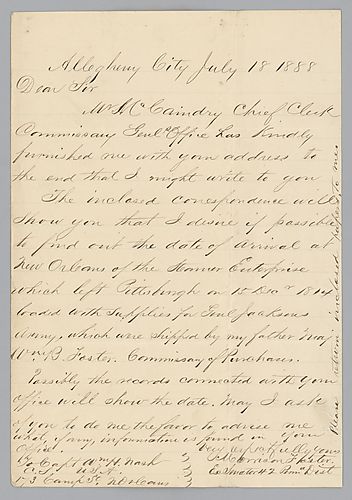 Allegheny City July 18 1888
Dear Sir
Chief Clerk
Commissary Genls Office has kindly
furnished me with your address to
the end that I might write to you
The inclosed correspondence will
show you that I desire if possible
to find out the date of arrival at
New Orleans of the Steamer Enterprise
which left Pittsburgh on 15 Decr 1814
loaded with supplies for Genl Jacksons
Army, which were shipped by my father Maj
Wm B. Foster. Commissary of Purchases.
Possibly the records connected with your
office will show the date. May I ask
of you to do me the favor to advise me
what, if any, information is found in your
Office.
Very respectfully yours
Morrison Foster
Ex Senator 42 Penna Dist
To Capt Wm H. Nash
U.S.A.
173 Camp St N Orleans
Please return inclosed papers to me